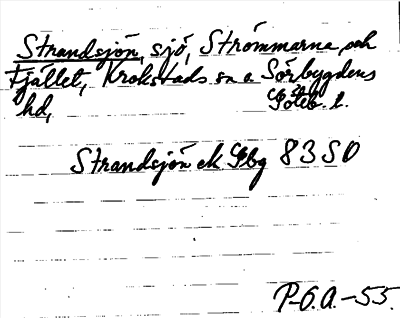 Strandsjön, sjö, Strömmarna och
Fjället, Krokstads sn o. Sörbygdens
hd, Göteb. l.
Strandsjön ek Gbg 83 SO
P-G.A.-55.